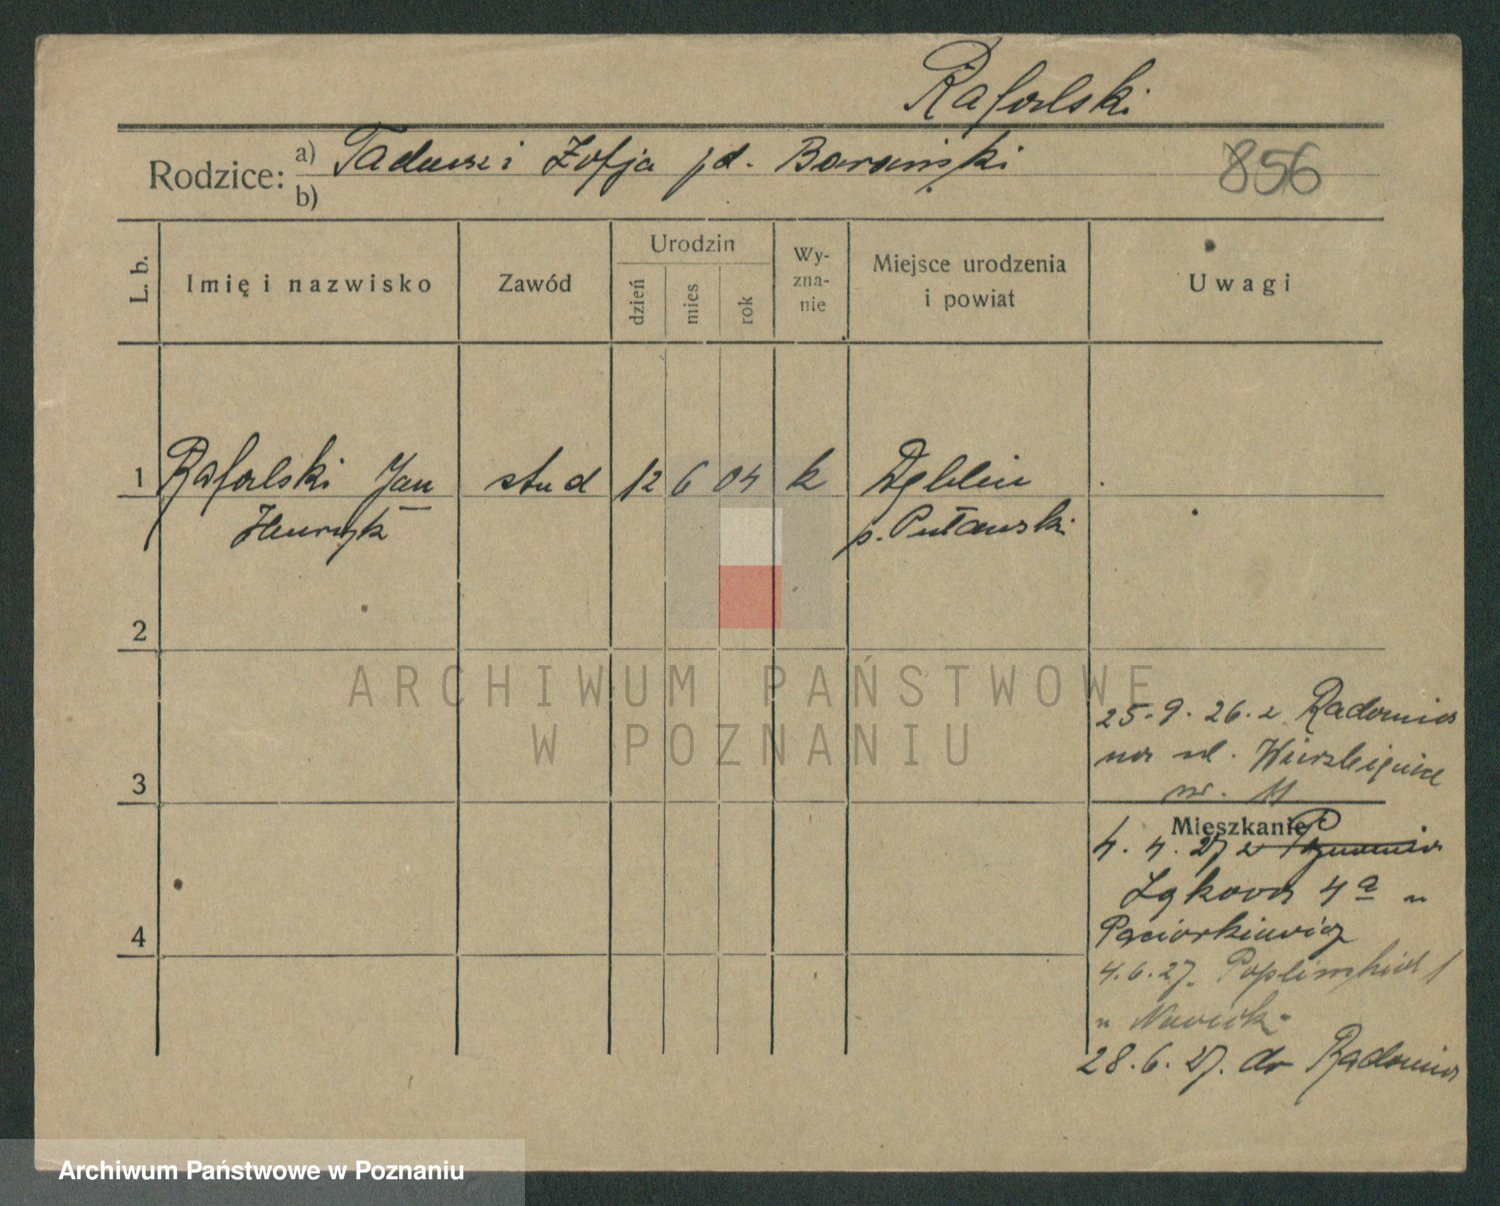 Rafalski
Rodzice: a) Tadeusz i Zofja pd. Barański
b)
856
L. b.
Imię i nazwisko
Zawód
Urodzin
dzień
mies
rok
Wy-
zna-
nie
Miejsce urodzenia
i powiat
Uwagi
1 Rafalski Jan stud 12 6 04 k Dęblin
Henryk p. Puławski
2
ARCHIWUM PAŃSTWOWE
W POZNANIU
25.9.26. z Radomia
na ul. Wierzbięcice
nr. 11
3
Mieszkanie:
4. 4. 27 z Poznania
Łąkowa 4a u
Paciorkiewicz
4
4.6.27. Poplińskich 1
u Nowick.
28.6.27. do Radomia
Archiwum Państwowe w Poznaniu